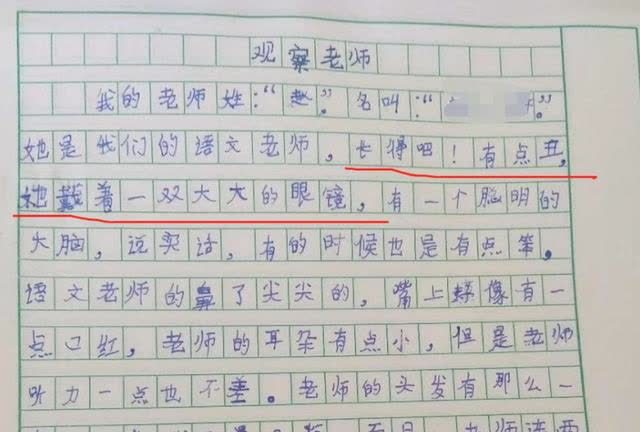 观察老师
我的老师姓:“赵”。名叫:“”。
她是我们的语文老师，长得吧！有点丑，
她戴着一双大大的眼镜，有一个脑明的
大脑，说实话，有的时候也是有点笨。
语文老师的鼻了尖尖的，嘴上好像有一
点口红，老师的耳朵有点小，但是老师
听力一点也不差。老师的头发有那么一